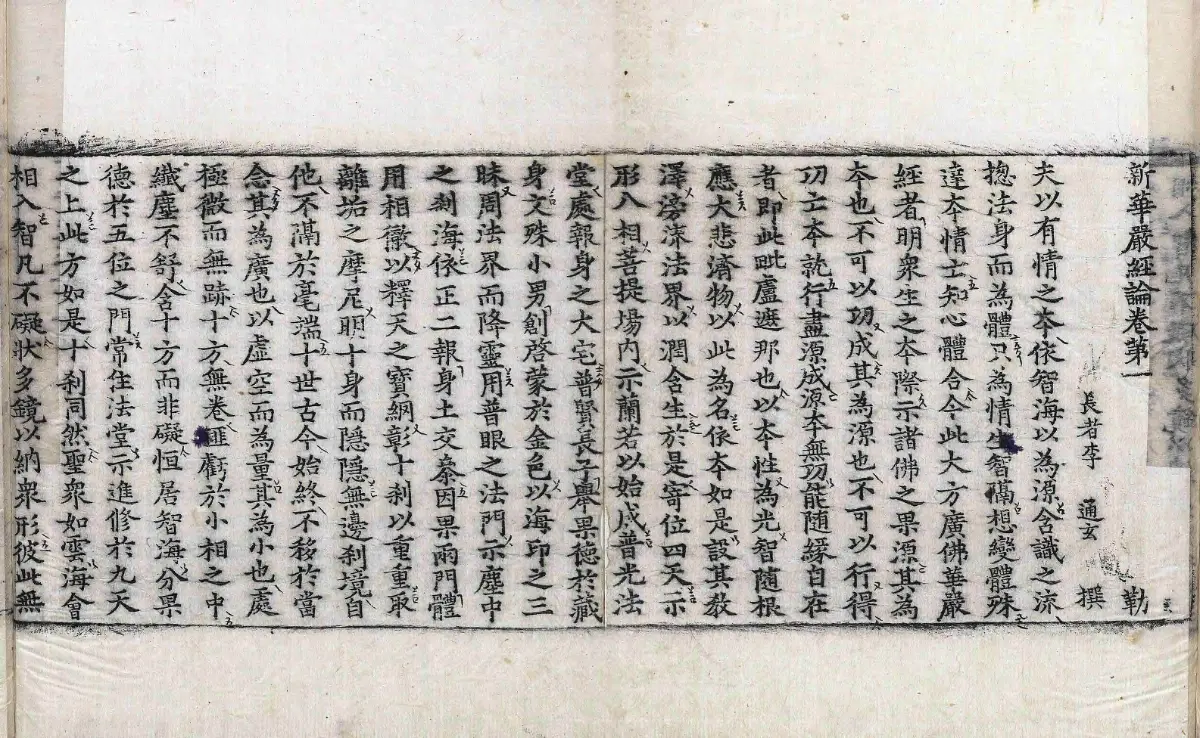 新華嚴經論卷第一　勒
長者李　通玄　撰
夫以有情之夲依智海以為源含識之流
揔法身而為體只為情生智隔想變體殊
達夲情亡知心體合今此大方廣佛華嚴
經者明衆生之夲際示諸佛之果源其為
夲也不可以功成其為源也不可以行得
功亡夲就行盡源成源夲無功能随緣自在
者即此毗盧遮那也以夲性為光智隨根
應大悲濟物以此為名依夲如是設其教
澤滂流法界以潤含生於是寄位四天示
形八相菩提場內示蘭若以始成普光法
堂處報身之大宅普賢長子舉果德於藏
身文殊小男創啓蒙於金色以海印之三
昧周法界而降靈用普眼之法門示塵中
之刹海依正二報身土交叅因果兩門體
用相徹以釋天之寶網彰十刹以重重取
離垢之摩尼明十身而隱隱無邊刹境自
他不隔於毫端十世古今始終不移於當
念其為廣也以虛空而為量其為小也處
極微而無跡十方無卷匪虧於小相之中
纖塵不舒含十方而非礙恒居智海分果
德於五位之門常住法堂示進修於九天
之上此方如是十刹同然聖衆如雲海會
相入智凡不礙狀多鏡以納衆形彼此無